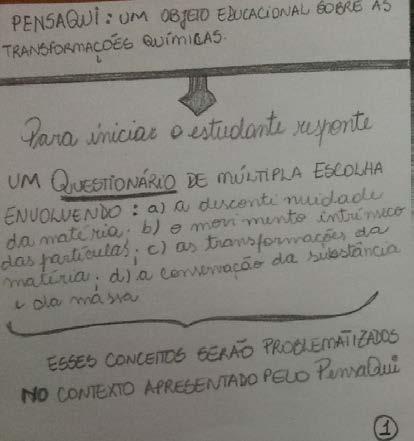 PENSAQUI: UM OBJETO EDUCACIONAL SOBRE AS
TRANSFORMAÇÕES QUÍMICAS.
Para iniciar o estudante responte
UM QUESTIONÁRIO DE MÚLTIPLA ESCOLHA
ENVOLVENDO: a) a descontinuidade
da matéria; b) o movimento intrínseco
das partículas; c) as transformações da
matéria; d) a conservação da substância
e da massa
ESSES CONCEITOS SERÃO PROBLEMATIZADOS
NO CONTEXTO APRESENTADO PELO PensaQui
1